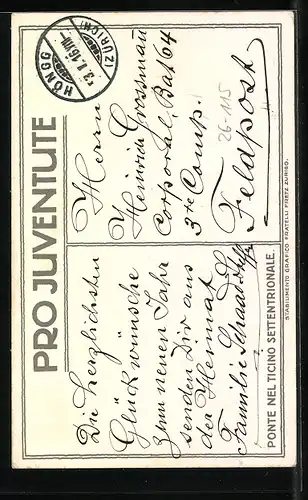 PRO JUVENTUTE
HÖNGG
(ZÜRICH)
Die herzlichsten
Glückwünsche
zum neuen Jahr
senden Dir aus
der Heimat
Familie Schaad
Herrn
Heinrich Grossmann
Corporal, Bat 64
3te Comp.
Feldpost
26-115
PONTE NEL TICINO SETTENTRIONALE.
STABILIMENTO GRAFICO FRATELLI FRETZ ZURIGO.